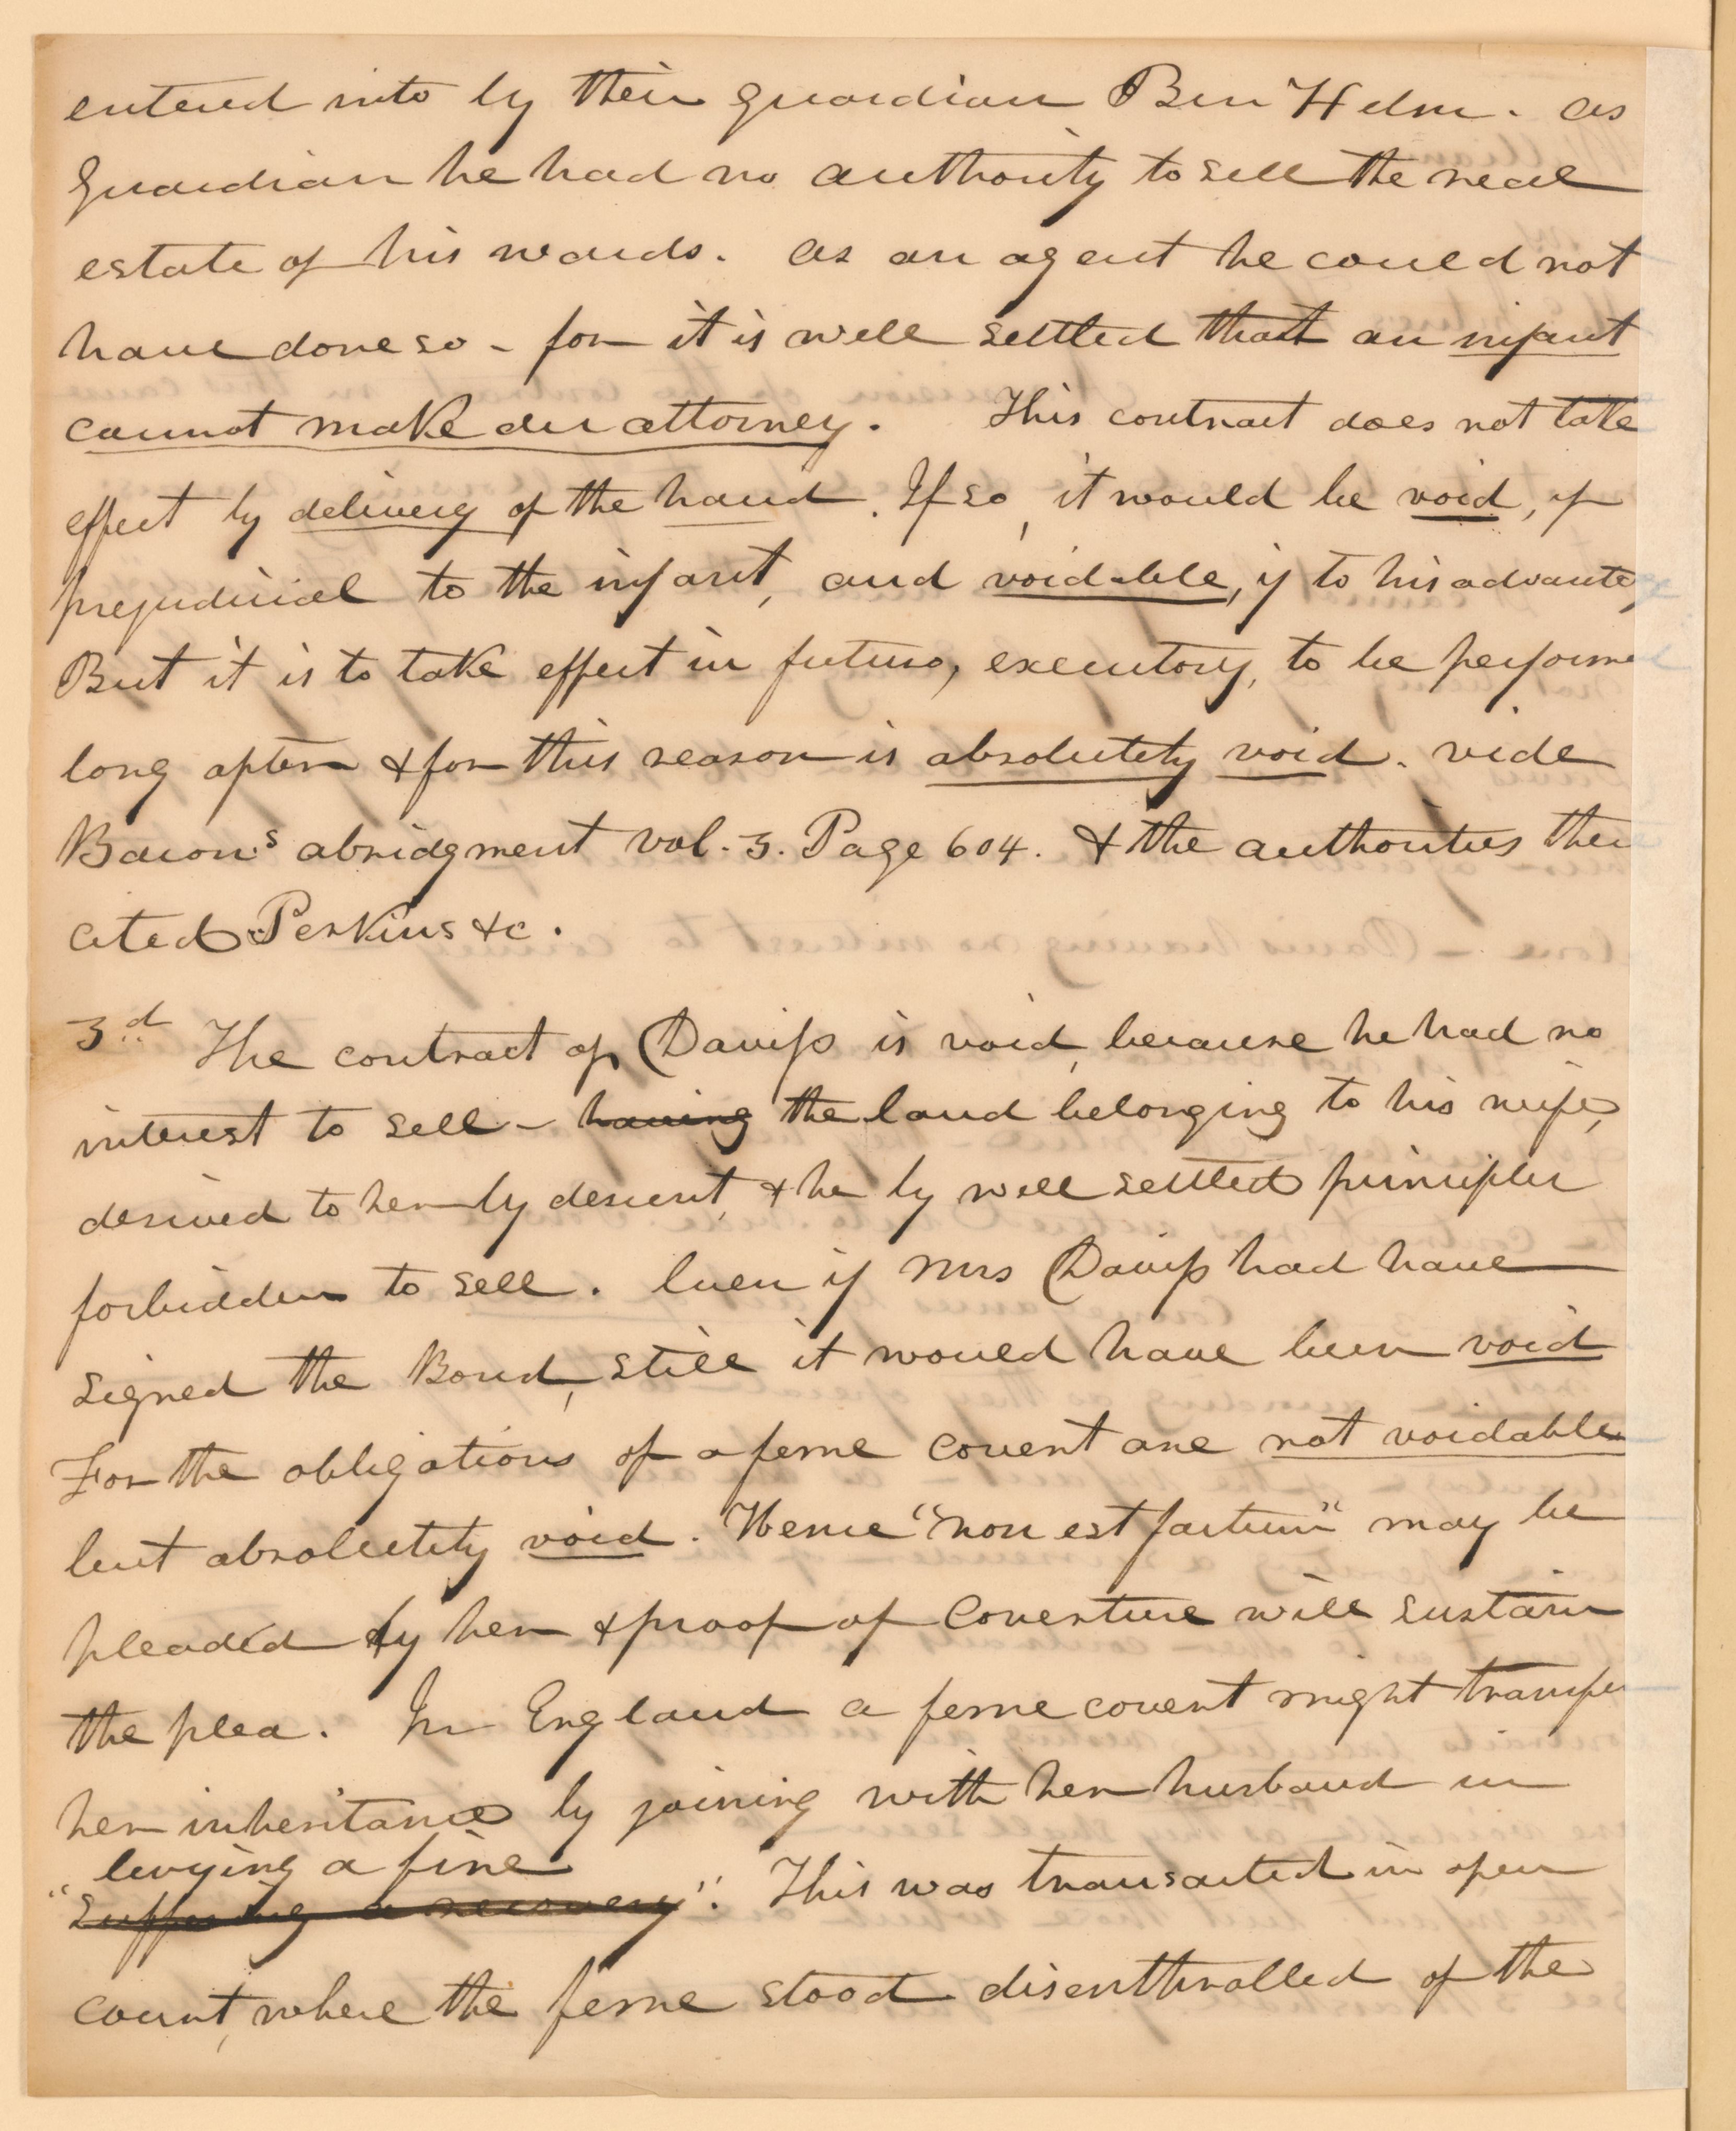 entered into by their guardian Ben Helm. as
Guardian he had no authority to sell the real
estate of his wards. as an agent he could not
have done so - for it is well settled that an infant
cannot make an attorney. This contract does not take
effect by delivery of the hand. If so, it would be void, if
prejudicial to the infant, and voidable, if to his advantag
But it is to take effect in futuro, executory, to be performe
long after & for this reason is absolutely void. vide
Bacons abridgment vol. 3. Page 604. & the authorities ther
cited Perkins &c.
3d The contract of Daviss is void, because he had no
interest to sell - having the land belonging to his wife,
derived to her by descent, & he by well settled principles
forbidden to sell. Even if Mrs Daviss had have
signed the Bond, still it would have been void
For the obligations of a feme covert are not voidable
but absolutely void. Hence "non est factum" may be
pleaded by her & proof of Coverture will sustain
the plea. In England a feme covert might transfer
her inheritance by joining with her husband in
levying a fine
"Suffering a recovery". This was transacted in open
court, where the feme stood disenthralled of the